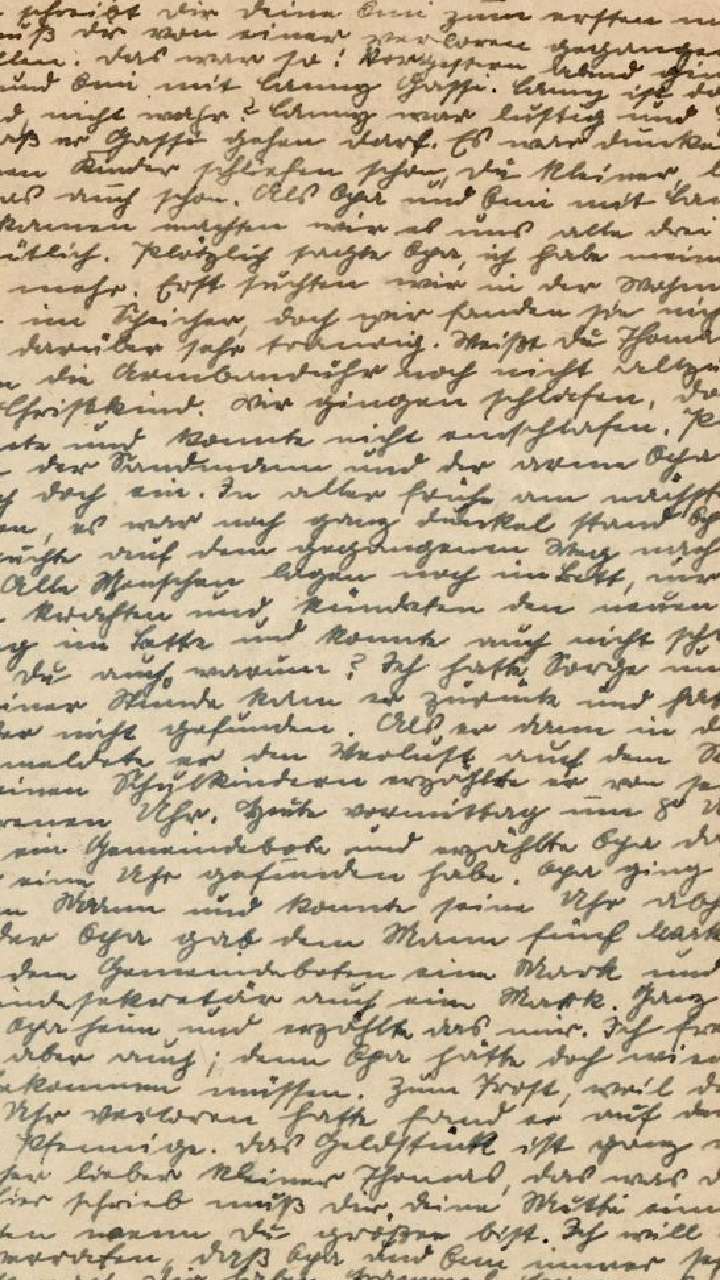 schreibt dir deine Omi zum ersten
muß dir von einer verloren gegangen
llen. Das war so! Vorgestern Abend gin
und Omi mit Lanny Gassi. Lanny ist do
d, nicht wahr? Lanny war lustig und
aß er Gassi gehen darf. Es war dunke
en Kinder schliefen schon, du kleiner
as auch schon. Als Opa und Omi mit Lan
kamen machten wir es uns alle drei
ütlich. Plötzlich sagte Opa, ich habe mein
mehr. Erst suchten wir in der Wohn
im Speicher, doch wir fanden sie nich
darüber sehr traurig. Weißt du Thoma
die Armbanduhr noch nicht
Christkind. Wir gingen schlafen, do
ete und konnte nicht einschlafen.
der Sandmann und der arme Opa
doch ein. In aller frühe am nächst
en, es war noch ganz dunkel stand Op
suchte auf dem gegangenen Weg nach
Alle Menschen lagen noch im Bett, nur
krachten und kündeten den neuen
g im Bette und konnte auch nicht sch
Du auch warum? Ich hatte Sorge um
einer Stunde kam er zurück und hat
der nicht gefunden. Als er dann in d
meldete er den Verlust auf dem
einen Schulkindern erzählte er von se
renen Uhr. Heute vormittag um 8°
ein Gemeindebote und erzählte Opa da
eine Uhr gefunden habe. Opa ging
Mann und konnte seine Uhr abh
der Opa gab dem Mann fünf Mark
dem Gemeindeboten eine Mark und
indesekretär auch eine Mark. Ganz
Opa heim und erzählte das mir. Ich fre
aber auch; denn Opa hätte doch wie
ekommen müssen. Zum Trost, weil d
Uhr verloren hatte fand er auf de
Pfennige. Das Geldstück ist ganz
lieber kleiner Thomas, das was
hier schrieb muß dir deine Mutti
wenn du größer bist. Ich will
verraten, daß Opa und Omi immer se